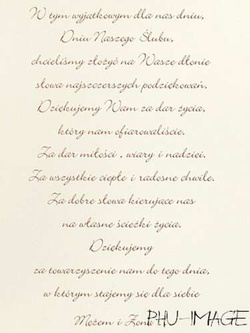 W tym wyjątkowym dla nas dniu,
Dniu Naszego Ślubu,
chcieliśmy złożyć na Wasze dłonie
słowa najszczerszych podziękowań.
Dziękujemy Wam za dar życia,
który nam ofiarowaliście.
Za dar miłości , wiary i nadziei.
Za wszystkie ciepłe i radosne chwile.
Za dobre słowa kierujące nas
na własne ścieżki życia.
Dziękujemy
za towarzyszenie nam do tego dnia,
w którym stajemy się dla siebie
Mężem i Żoną
PHU-IMAGE